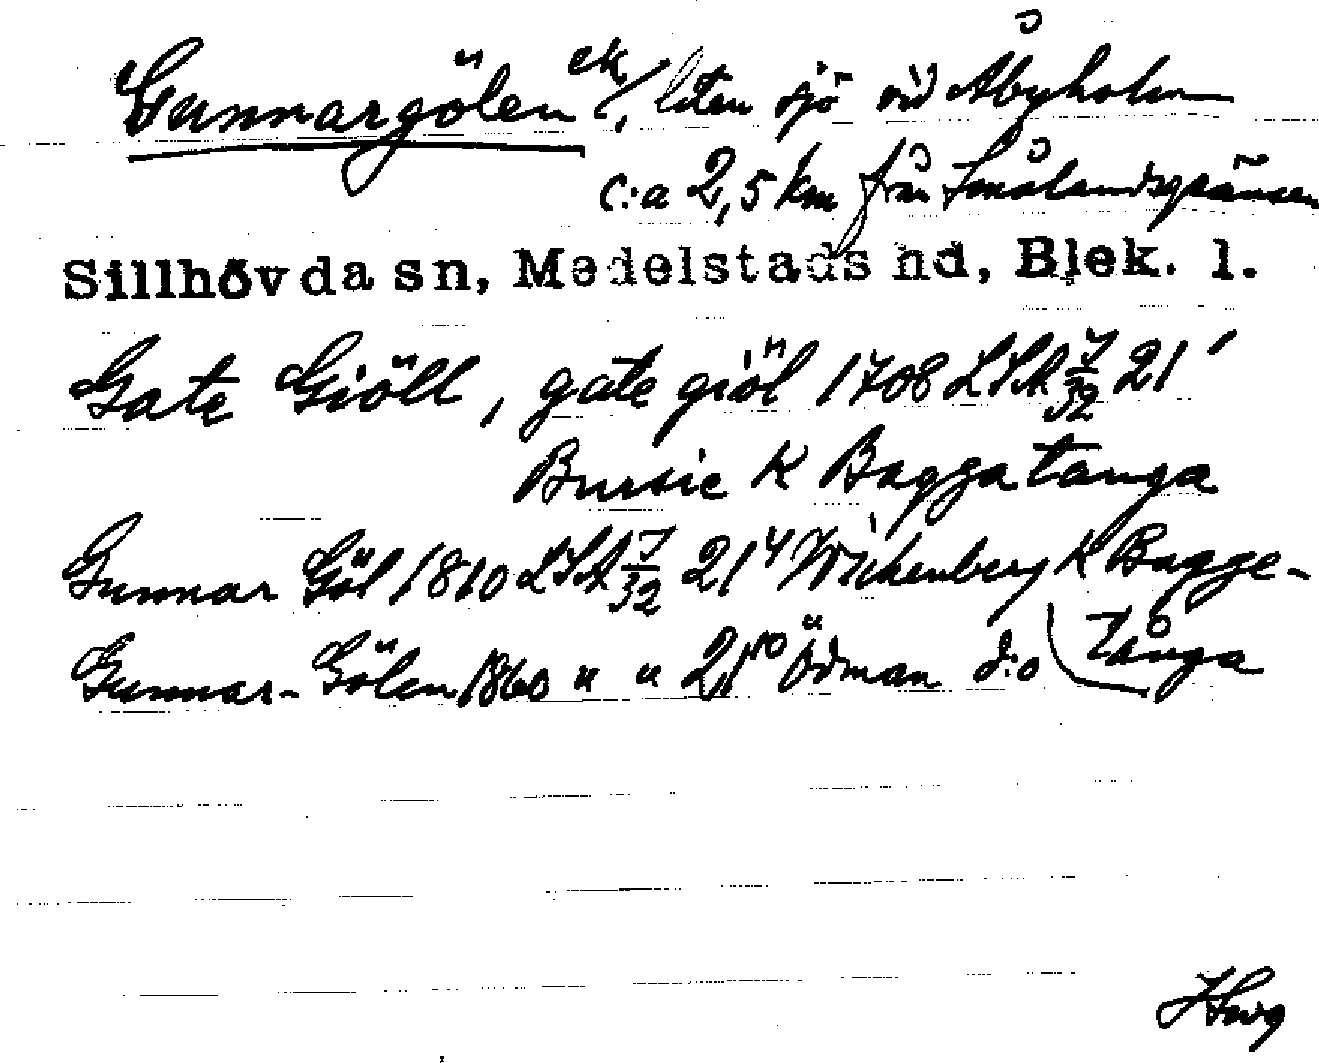 Gunnargölen ek/, liten sjö vid Åbyholm
c:a 2,5 km från Smålandsgränsen
Sillhövda sn, Medelstads hd, Blek. l.
Gate Giöll, gate giöl 1708 LSA 7/32 21'
Bursie K Baggatanga
Gunnar Göl 1810 LSA 7/32 21⁴ Wickenberg K Bagge-
Gunnar-Gölen 1860 " " 21¹⁰ Ödman d:o (Tånga